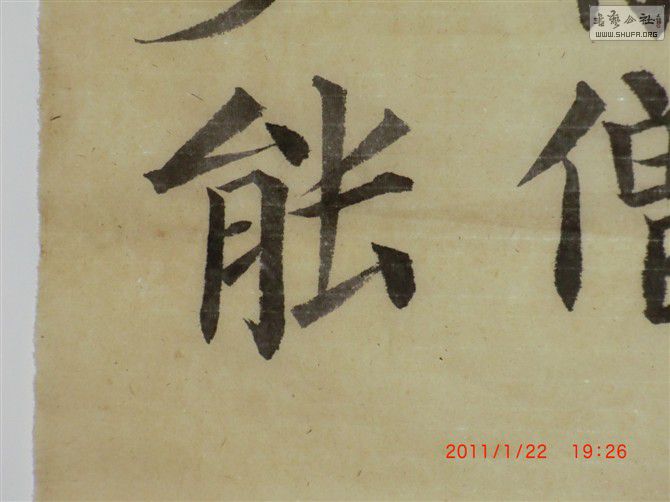 僧
能
书艺公社
WWW.SHUFA.ORG
2011/1/22 19:26